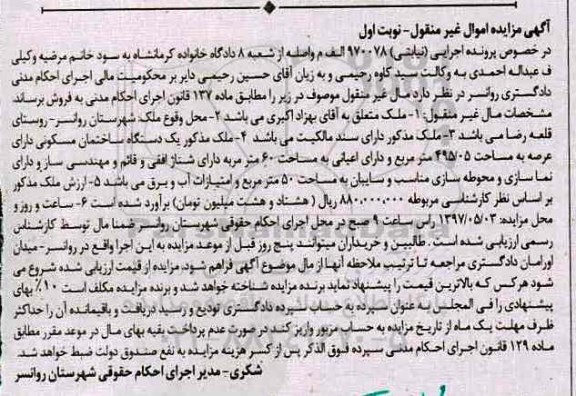 آگهی مزایده اموال غیر منقول- نوبت اول
در خصوص پرونده اجرایی (نیابتی) ۹۷۰۰۷۸ الف م واصله از شعبه ۸ دادگاه خانواده کرمانشاه به سود خانم مرضیه وکیلی
ف عبدالـه احمدی بـه وکالت سید کاوه رحیمی و به زیان آقای حسین رحیمی دایر بر محکومیت مالی اجرای احکام مدنی
دادگستری روانسر در نظر دارد مـال غیر منقول موصوف در زیر را مطابق ماده ۱۳۷ قانون اجرای احکام مدنی به فروش برساند.
مشخصات مـال غیر منقول: ۱- ملک متعلق به آقای بهزاد اکبری می باشد ۲- محل وقوع ملک: شهرستان روانسر- روستای
قلعه رضا می باشد ۳- ملک مذکور دارای سند مالکیت می باشد ۴- ملک مذکور یک دستگاه ساختمان مسکونی دارای
عرصه به مساحت ۴۹۵/۰۵ متر مربع و دارای اعیانی به مساحت ۶۰ متر مربه دارای شناژ افقی و قائم و مهندسی ساز و دارای
نما سازی و محوطه سازی مناسب و سایبان به مساحت ۵۰ متر مربع و امتیازات آب و بـرق می باشد ۵- ارزش ملک مذکور
بر اساس نظر کارشناسی مربوطه ۸۸۰,۰۰۰,۰۰۰ ریال ( هشتاد و هشت میلیون تومان) برآورد شده است ۶- ساعت و روز و
محل مزایده: ۱۳۹۷/۰۵/۰۳ راس ساعت ۹ صبح در محل اجرای احکام حقوقی شهرستان روانسر ضمنا مال توسط کارشناس
رسمی ارزیابی شده است . طالبین و خریداران میتوانند پنج روز قبل از موعد مزایده به این اجرا واقع در روانسر- میدان
اورامان دادگستری مراجعه تـا ترتیب ملاحظه آنها از مال موضوع آگهی فراهم شود، مزایده از قیمت ارزیابی شده شروع می
شود هر کس که بالاترین قیمت را پیشنهاد نماید برنده مزایده شناخته خواهد شد و برنده مزایده مکلف است ۱۰٪ بهای
پیشنهادی را فی المجلس به عنوان سپرده به حساب سپرده دادگستری تودیع و رسید دریافت و باقیمانده آن را حداکثر
ظرف مهلت یک ماه از تاریخ مزایده به حساب مزبور واریز کند در صورت عدم پرداخت بقیه بهای مال در موعد مقرر مطابق
ماده ۱۲۹ قانون اجرای احکام مدنی سپرده فوق الذکر پس از کسر هزینه مزایده به نفع صندوق دولت ضبط خواهد شد.
شکری- مدیر اجرای احکام حقوقی شهرستان روانسر